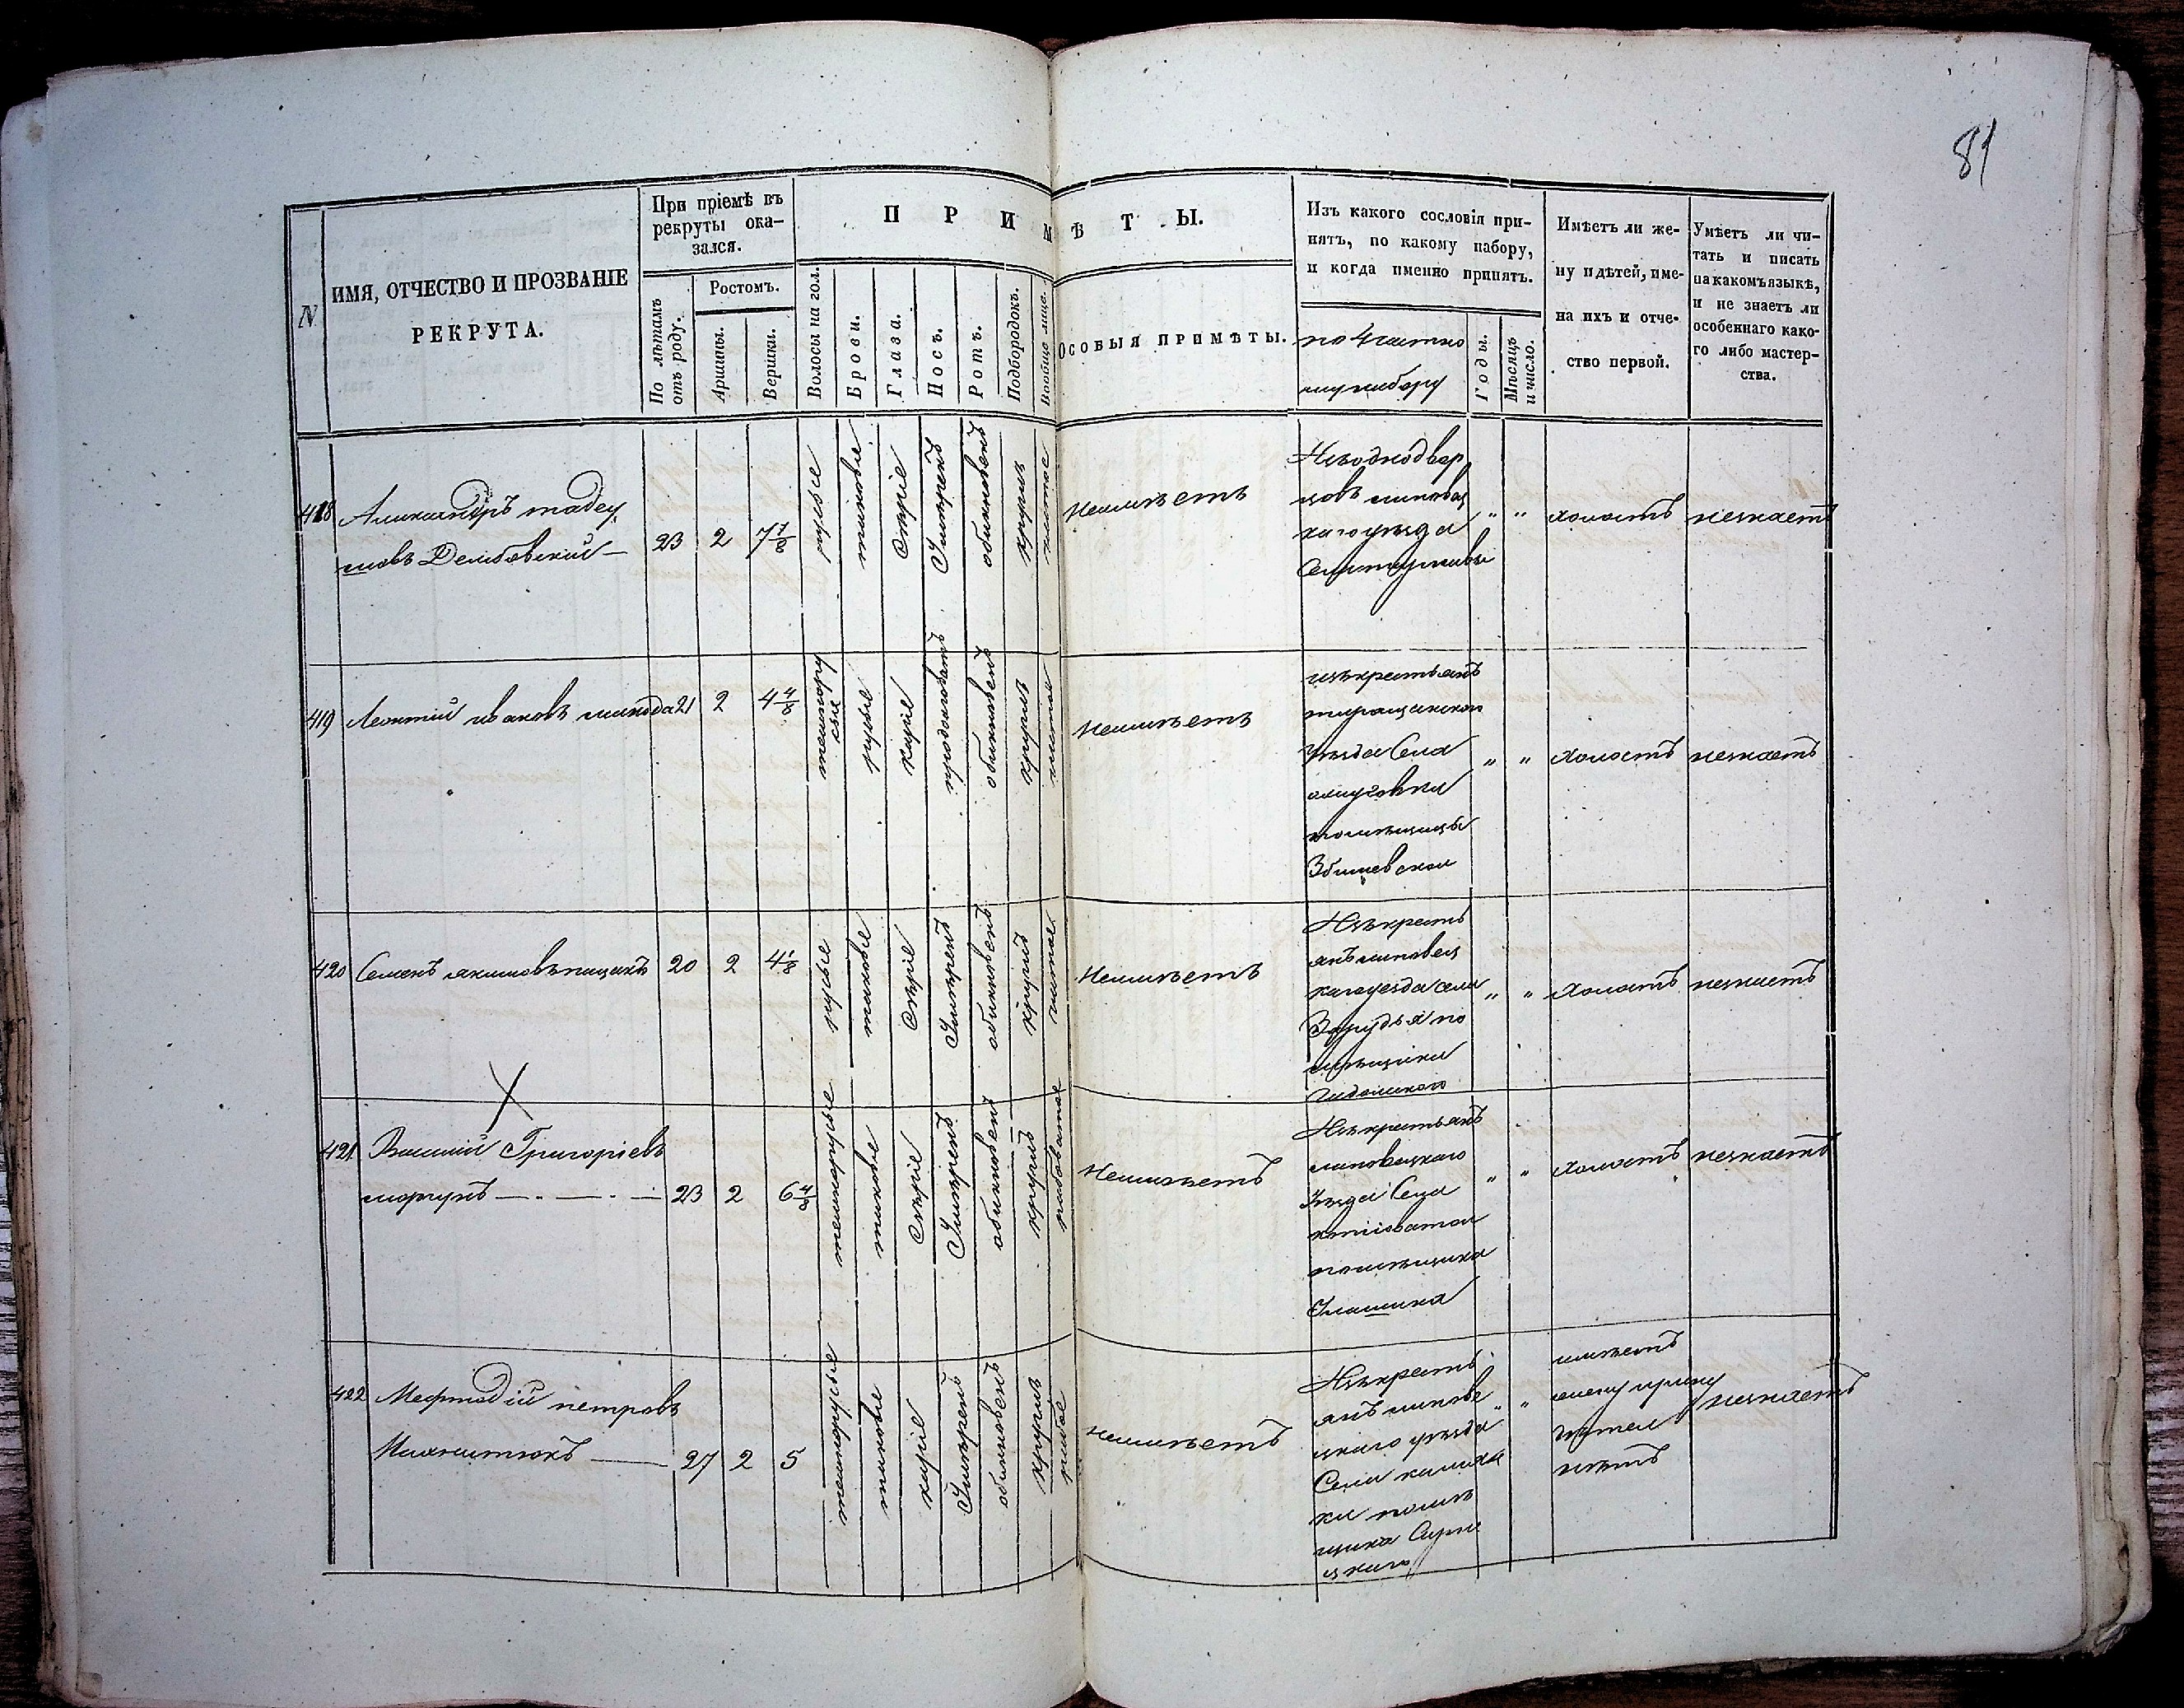 81
N
ИМЯ, ОТЧЕСТВО И ПРОЗВАНІЕ
РЕКРУТА.
При пріемѣ въ
рекруты ока-
зался.
По лѣтамъ
отъ роду.
Ростомъ.
Аршины.
Вершки.
П Р И М Ѣ Т Ы.
Волосы на гол.
Брови.
Глаза.
Носъ.
Ротъ.
Подбородокъ.
Вообще лице.
ОСОБЫЯ ПРИМѢТЫ.
Изъ какого сословія при-
нятъ, по какому набору,
и когда именно принятъ.
по 4 частно
му набору
Годы.
Мѣсяцъ
и число.
Имѣетъ ли же-
ну и дѣтей, име-
на ихъ и отче-
ство первой.
Умѣетъ ли чи-
тать и писать
на какомъ языкѣ,
и не знаетъ ли
особеннаго како-
го либо мастер-
ства.
418
Александръ тадеу
шовъ Дембовский —
23
2
7 7/8
русые
таковые
Сѣріе
Умѣренъ
обикновенъ
круглъ
чистое
Неимѣетъ
Изъ однодвор
цовъ липовец
каго уѣзда
" "
холостъ
незнаетъ
419
Леонтий ивановъ
21
2
4 4/8
темнору
сые
русые
каріе
продолговатъ
обикновенъ
круглъ
чистое
Неимѣетъ
изъ крестьянъ
Уѣзда Села
помѣщицы
" "
холостъ
незнаетъ
420
Семенъ якимовъ пацанъ
20
2
4 1/8
русые
таковые
Сѣріе
Умѣренъ
обикновенъ
круглъ
чистое
Неимѣетъ
Изъ кресть
янъ липовец
каго уезда села
Зарудья по
мѣщика
" "
холостъ
незнаетъ
421
Василий Григоріевъ
моргунъ — . — . —
23
2
6 4/8
темнорусые
таковые
Сѣріе
Умѣренъ
обикновенъ
круглъ
рабоватое
Неимѣетъ
Изъ крестьянъ
липовецкаго
Уѣзда Села
помѣщика
" "
холостъ
незнаетъ
422
Мефтодій петровъ
27
2
5
темнорусые
таковые
каріе
Умѣренъ
обикновенъ
круглъ
рабое
неимѣетъ
Изъ кресть
янъ липове
цкаго уѣзда
Села
ки помѣ
щика
цкаго
" "
имѣетъ
жену ирину
дѣтей
нѣтъ
незнаетъ